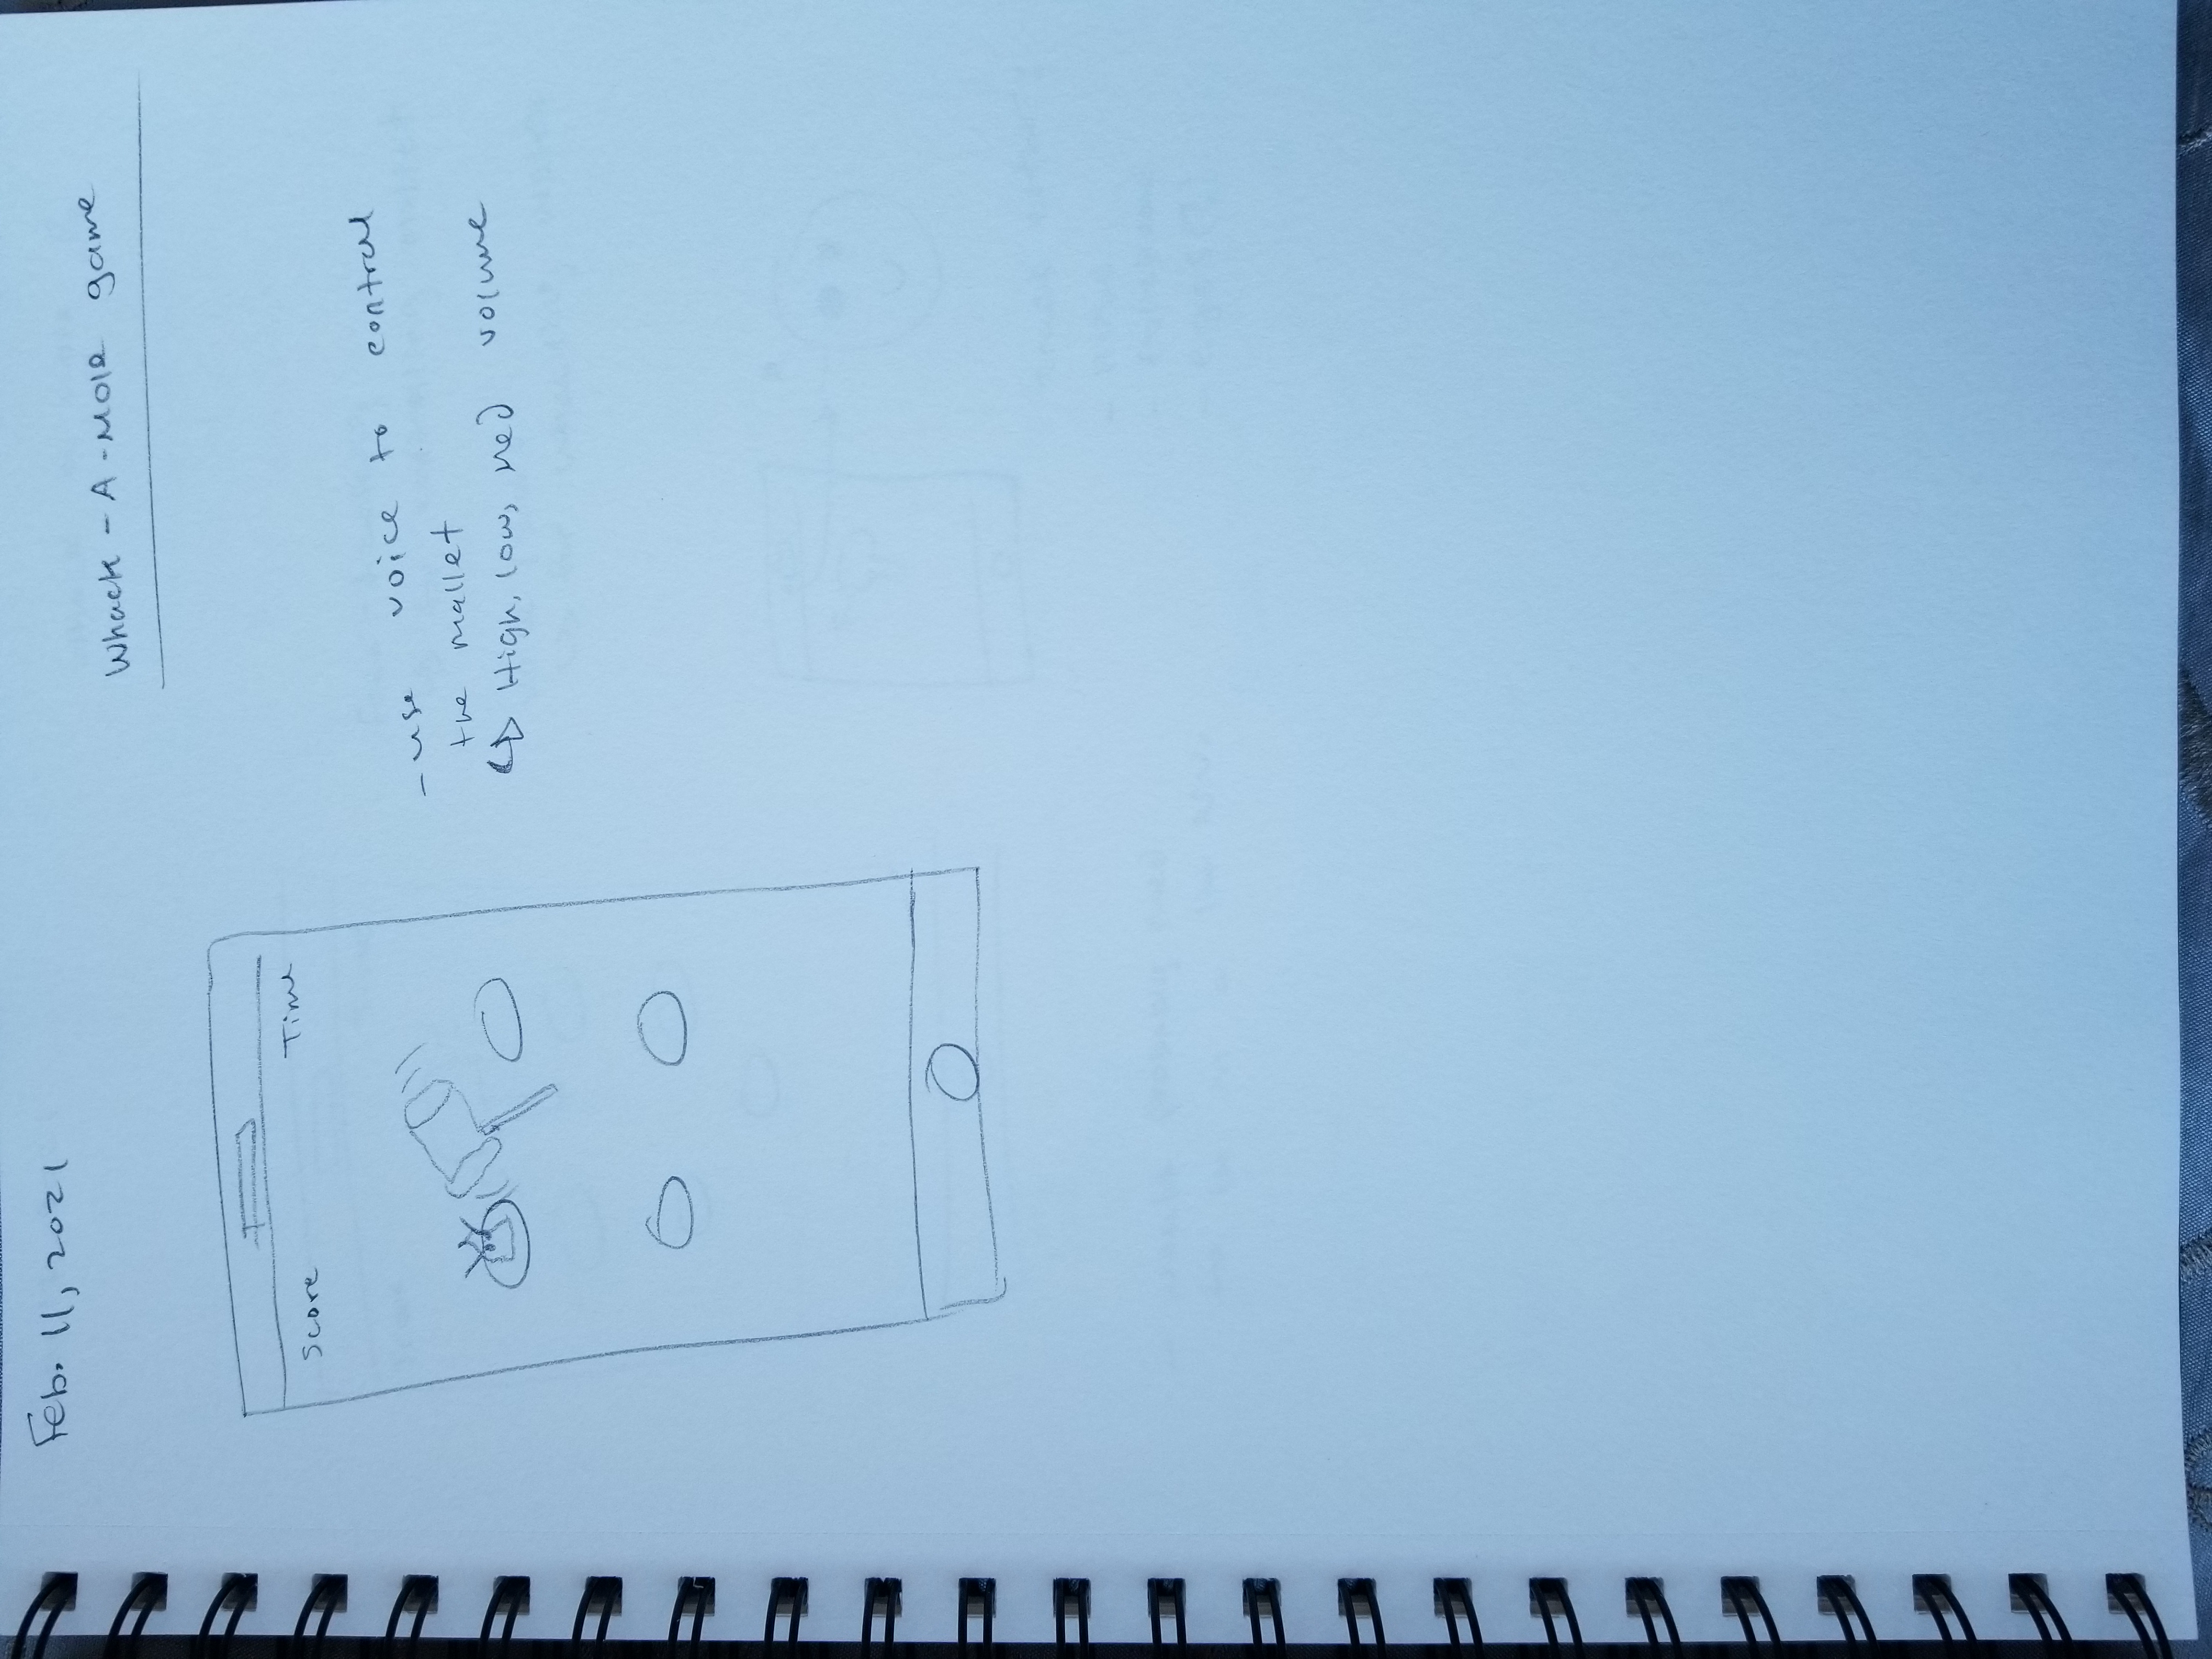 Feb. 11, 2021
Whack-A-Mole game
Score
Time
- use voice to control
the mallet
↳ High, low, med volume